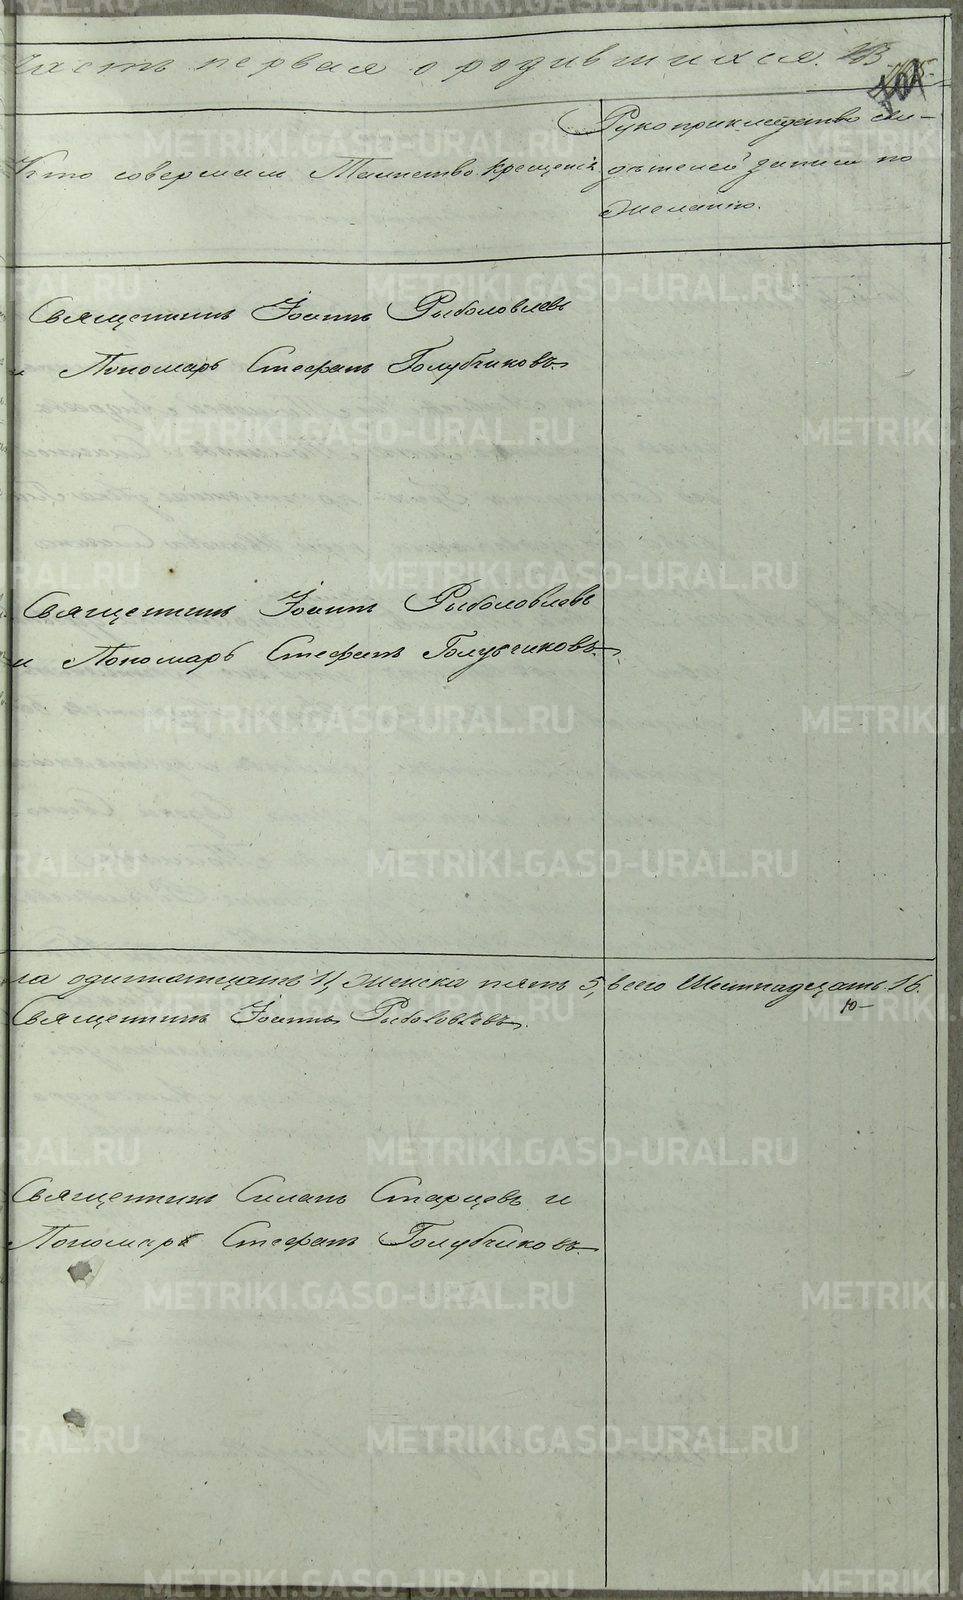 Часть первая о родившихся.
Кто совершалъ Таинство крещенія
Рукоприкладство сви-
дѣтелей записи по
желанію.
Священникъ Іоаннъ Рыболовлевъ
и Пономарь Стефанъ Голубчиковъ.
Священникъ Іоаннъ Рыболовлевъ
и Пономарь Стефанъ Голубчиковъ.
ла одиннатцать 11, женска пять 5, всего Шестнадцать. 16.
Священникъ Іоаннъ Рыболовлевъ.
Священникъ Силанъ Старцевъ и
Пономарь Стефанъ Голубчиковъ.
METRIKI.GASO-URAL.RU